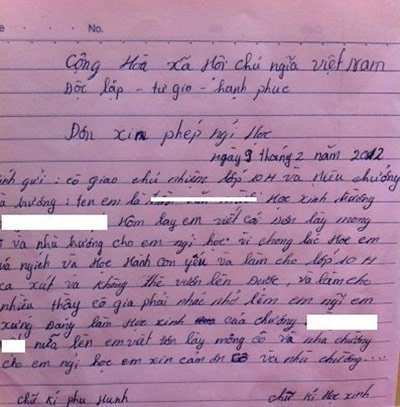 No.
Cộng Hòa xã Hội chủ ngĩa việt Nam
Độc lập - tự gio - hạnh phúc
Đơn xin phép ngỉ Học
ngày 9 tháng 2 năm 2012
ính gửi: cô giao chủ nhiêm lớp 10 H và Hiêu chưởng
à trường: tên em là Học xinh trường
Hôm lay em viết cái Đơn lày mong
và nhà trường cho em ngỉ học vì chong lúc Học em
uá ngịch và Học Hành còn yếu và làm cho lớp 10 H
ca xút và không thể vươn lên, Được, và làm cho
nhiều thầy cô gia phải nhac nhở lên em ngĩ em
xứng Đáng làm Học xinh của chường
nữa lên em viết Đơn lày mông cô và nhà chường
cho em ngỉ học em xin cảm ơn cô và nhà chường....
chữ kí phụ Huynh chữ kí Học xinh